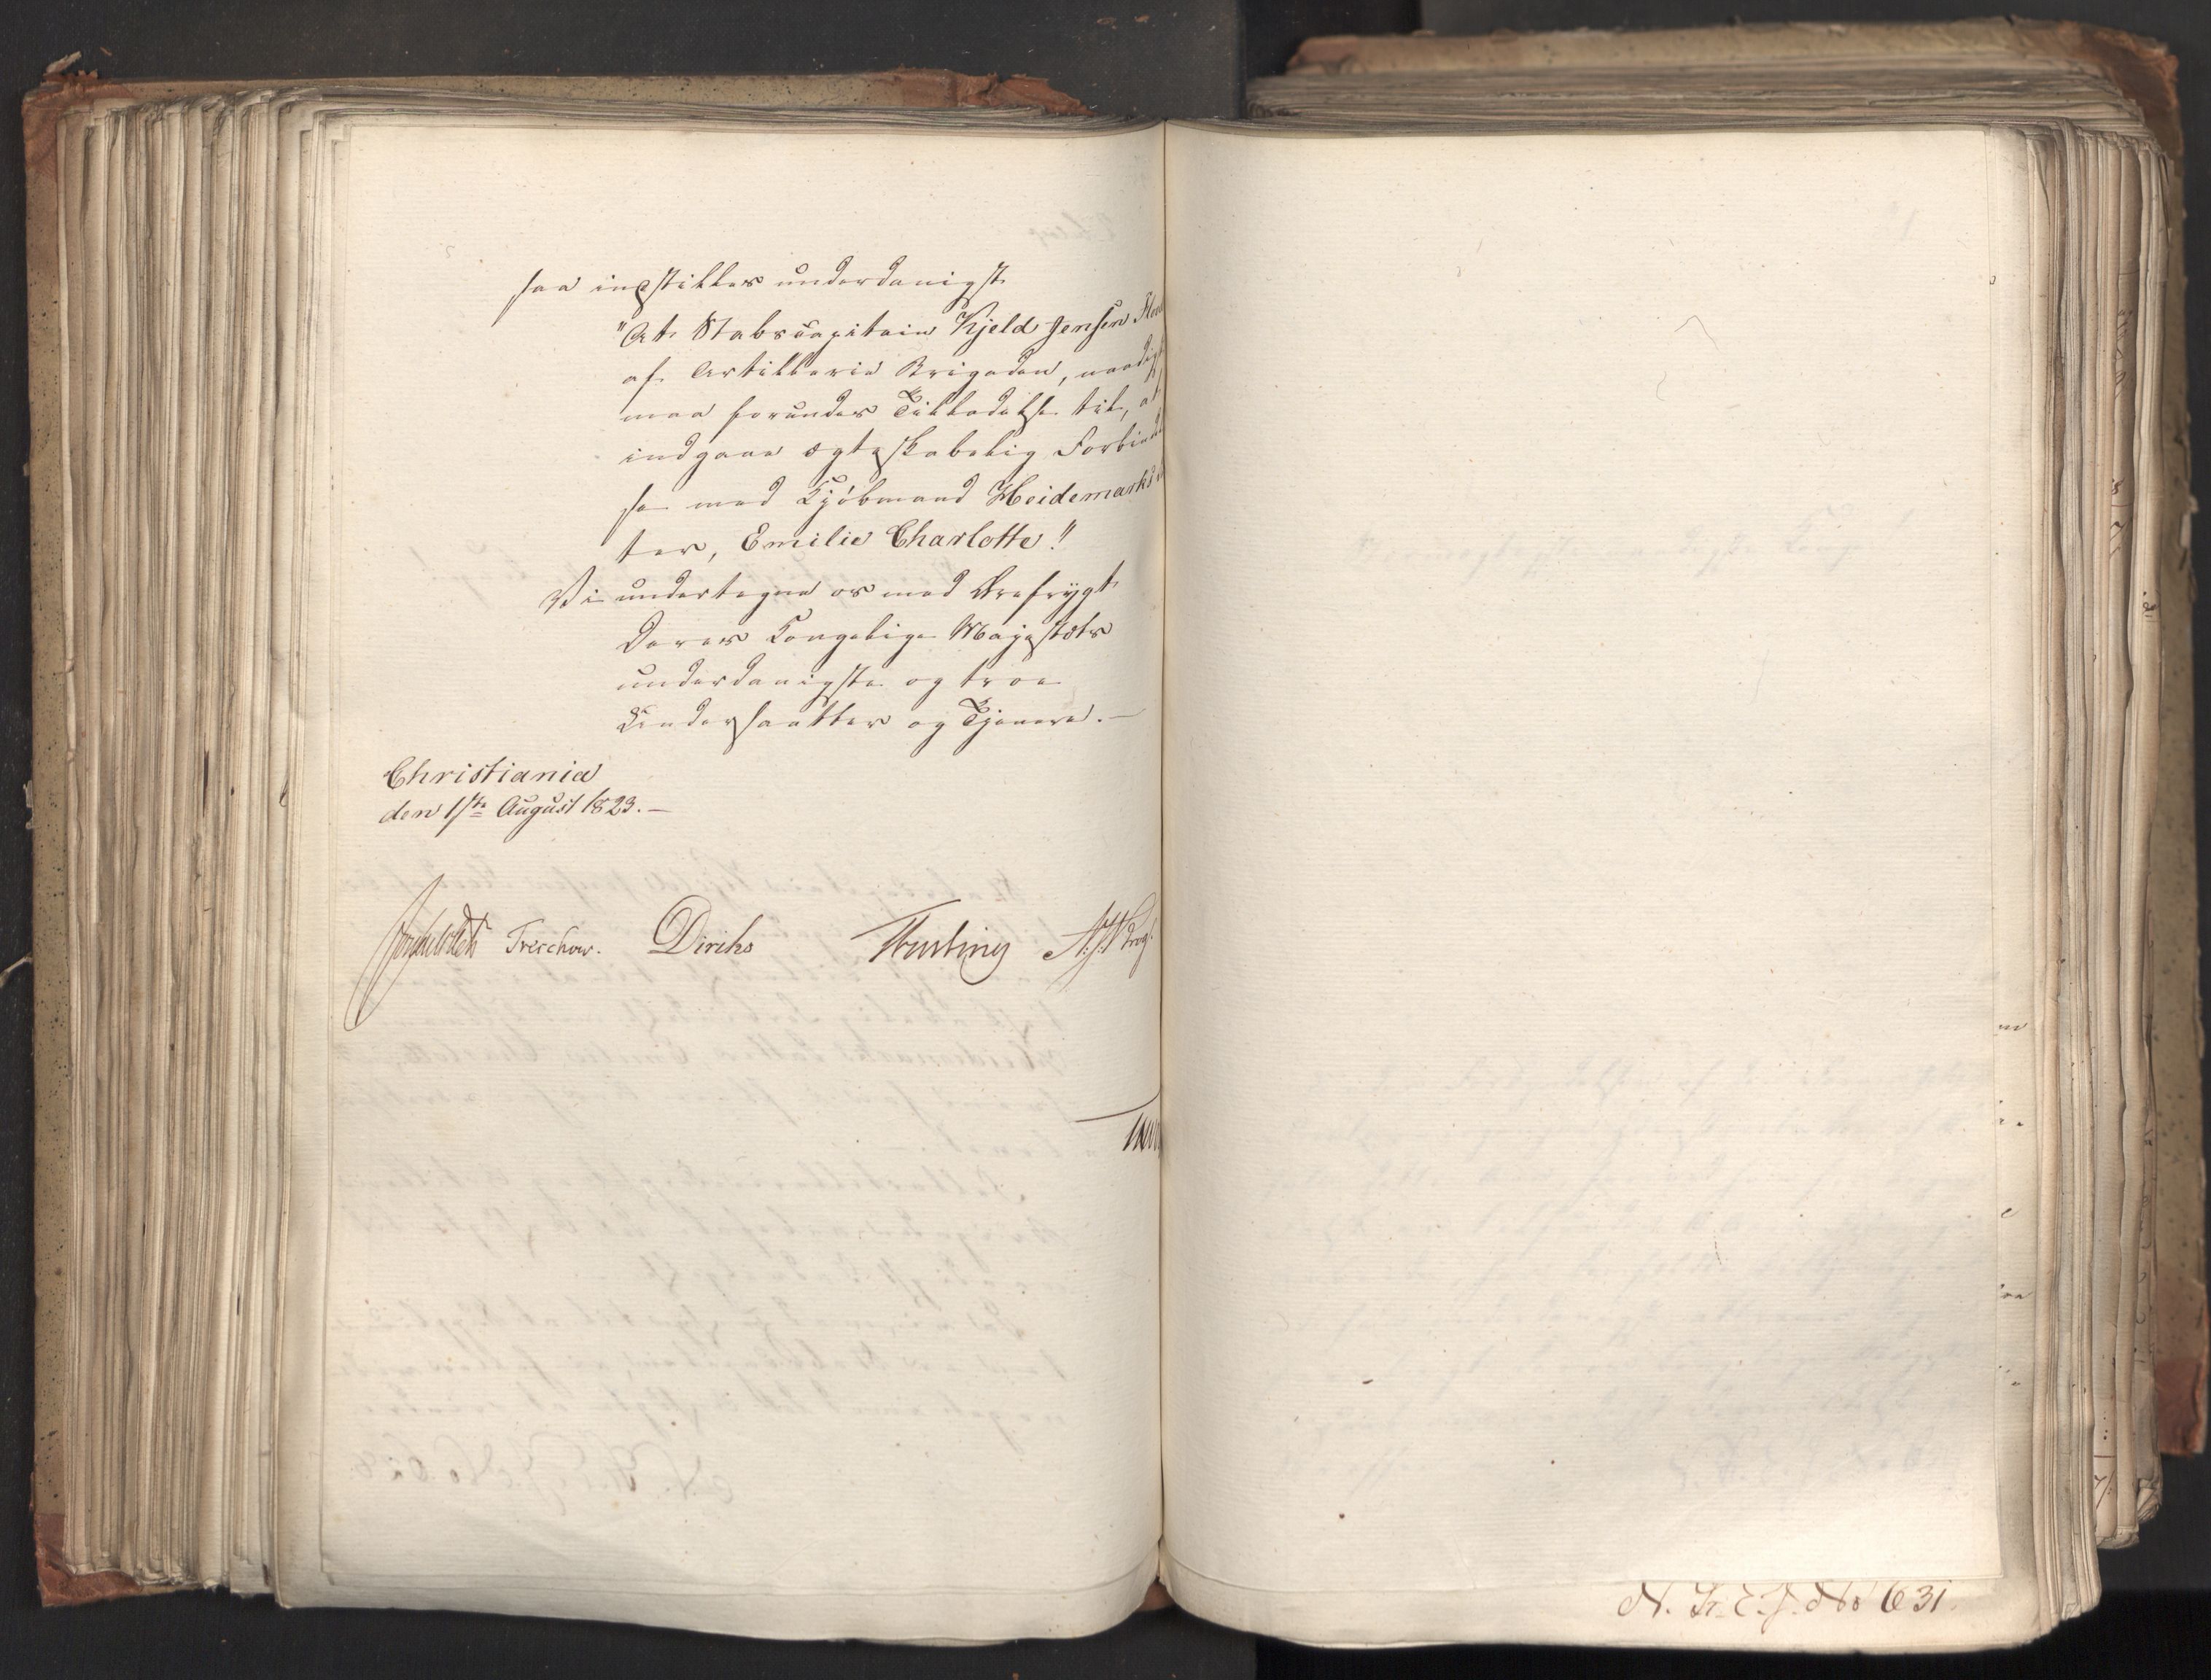 saa indstilles underdanigst
"At Stabscapitain Kjeld Jensen
af Artillerie Brigaden, naadigst
maa forundes Tilladelse til, at
indgaae ægteskabelig Forbindel
se med Kjøbmand Heidemarks
ter, Emilie Charlotte."
Vi undertegne os med Ærefrygt
Deres Kongelige Majestæts
underdanigste og troe
Undersaatter og Tjenere.—
Christiania
den 1ste August 1823.—
Treschow. Diriks
N. K. E. J. No 631.